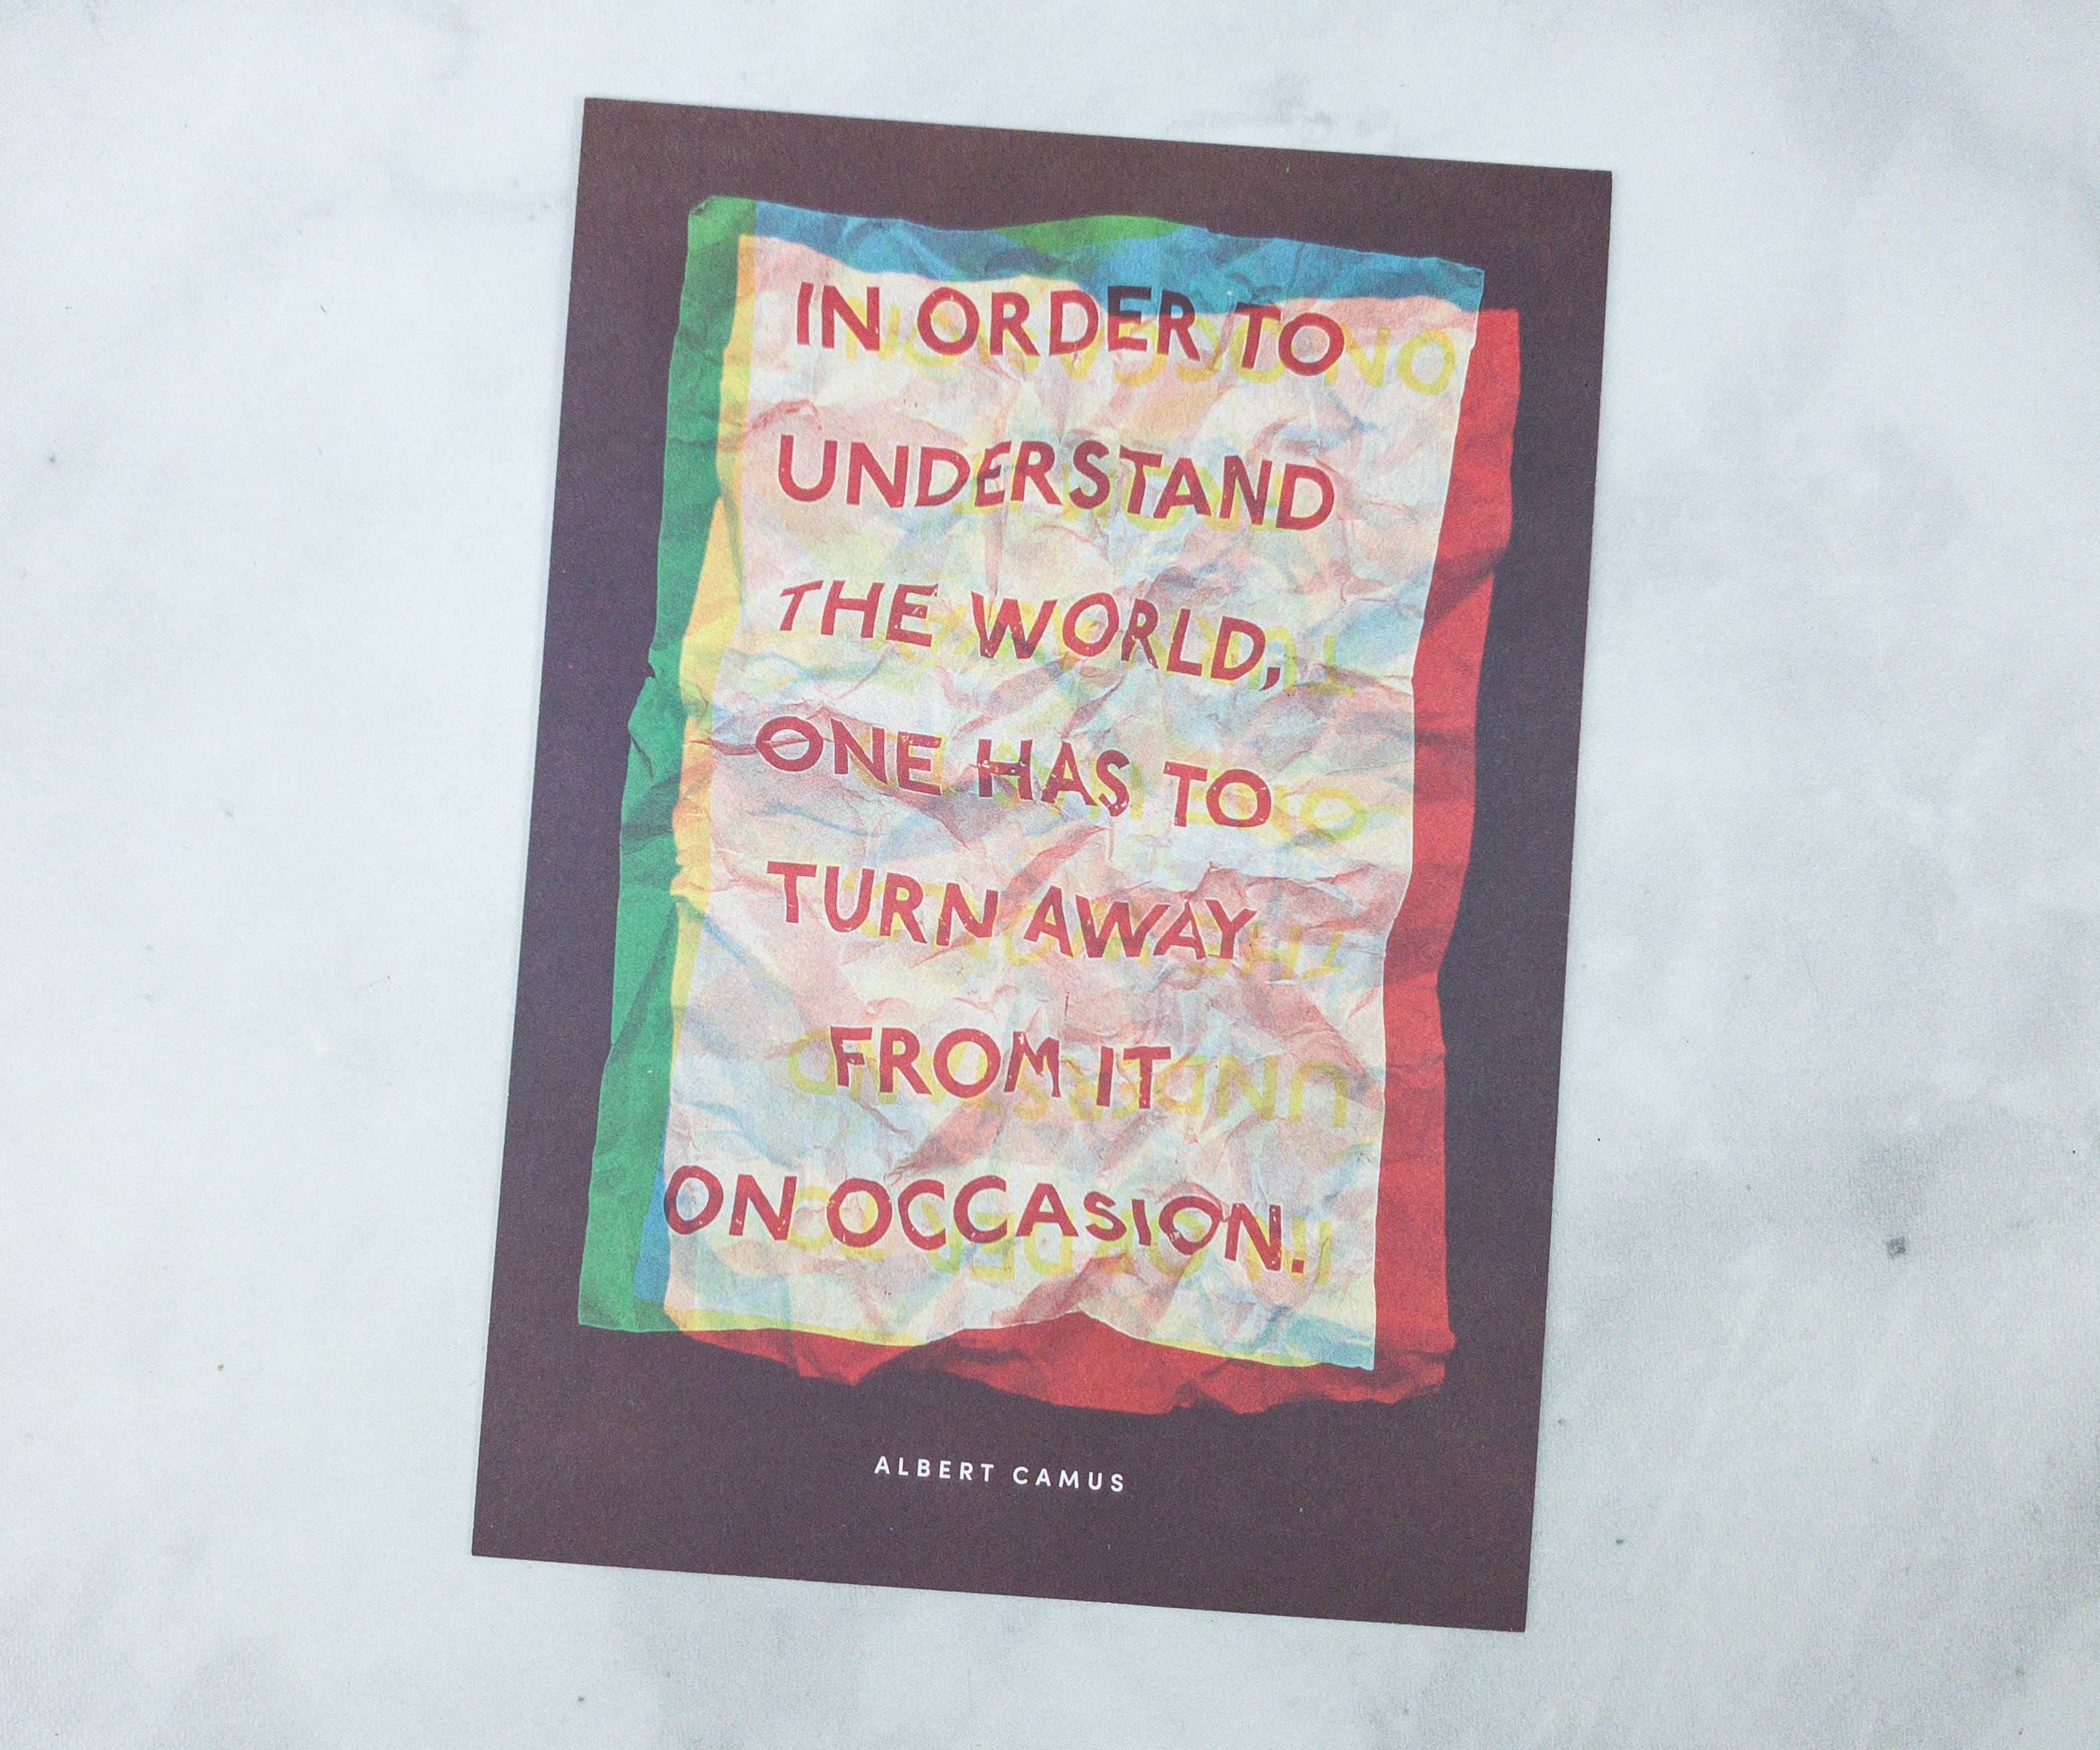 IN ORDER TO
UNDERSTAND
THE WORLD,
ONE HAS TO
TURN AWAY
FROM IT
ON OCCASION.
ALBERT CAMUS